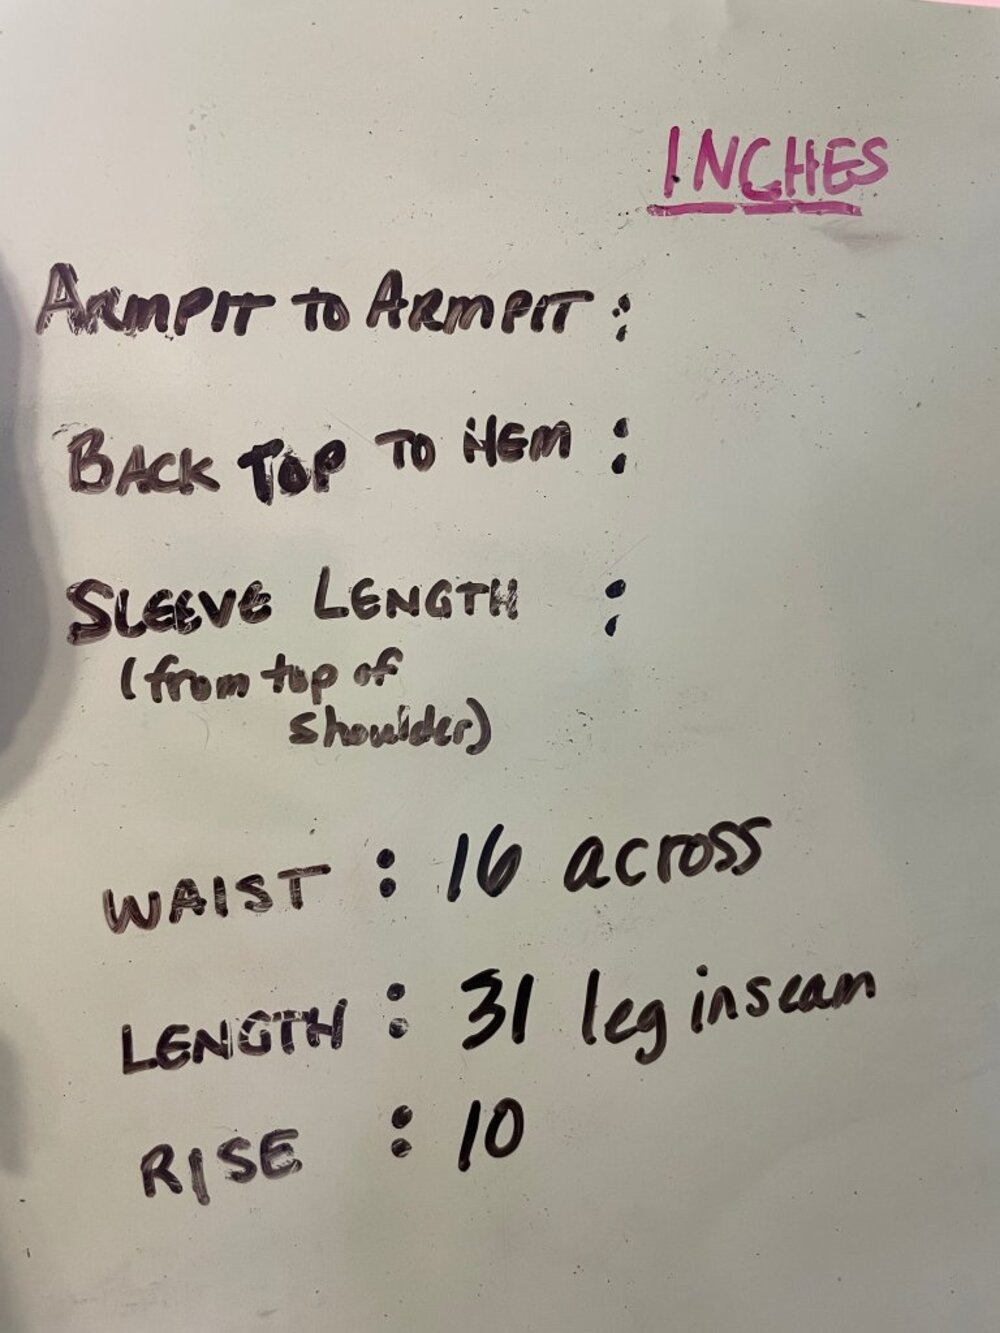 INCHES
ARMPIT TO ARMPIT :
BACK TOP TO HEM :
SLEEVE LENGTH :
(from top of
shoulder)
WAIST : 16 across
LENGTH : 31 leg inseam
RISE : 10